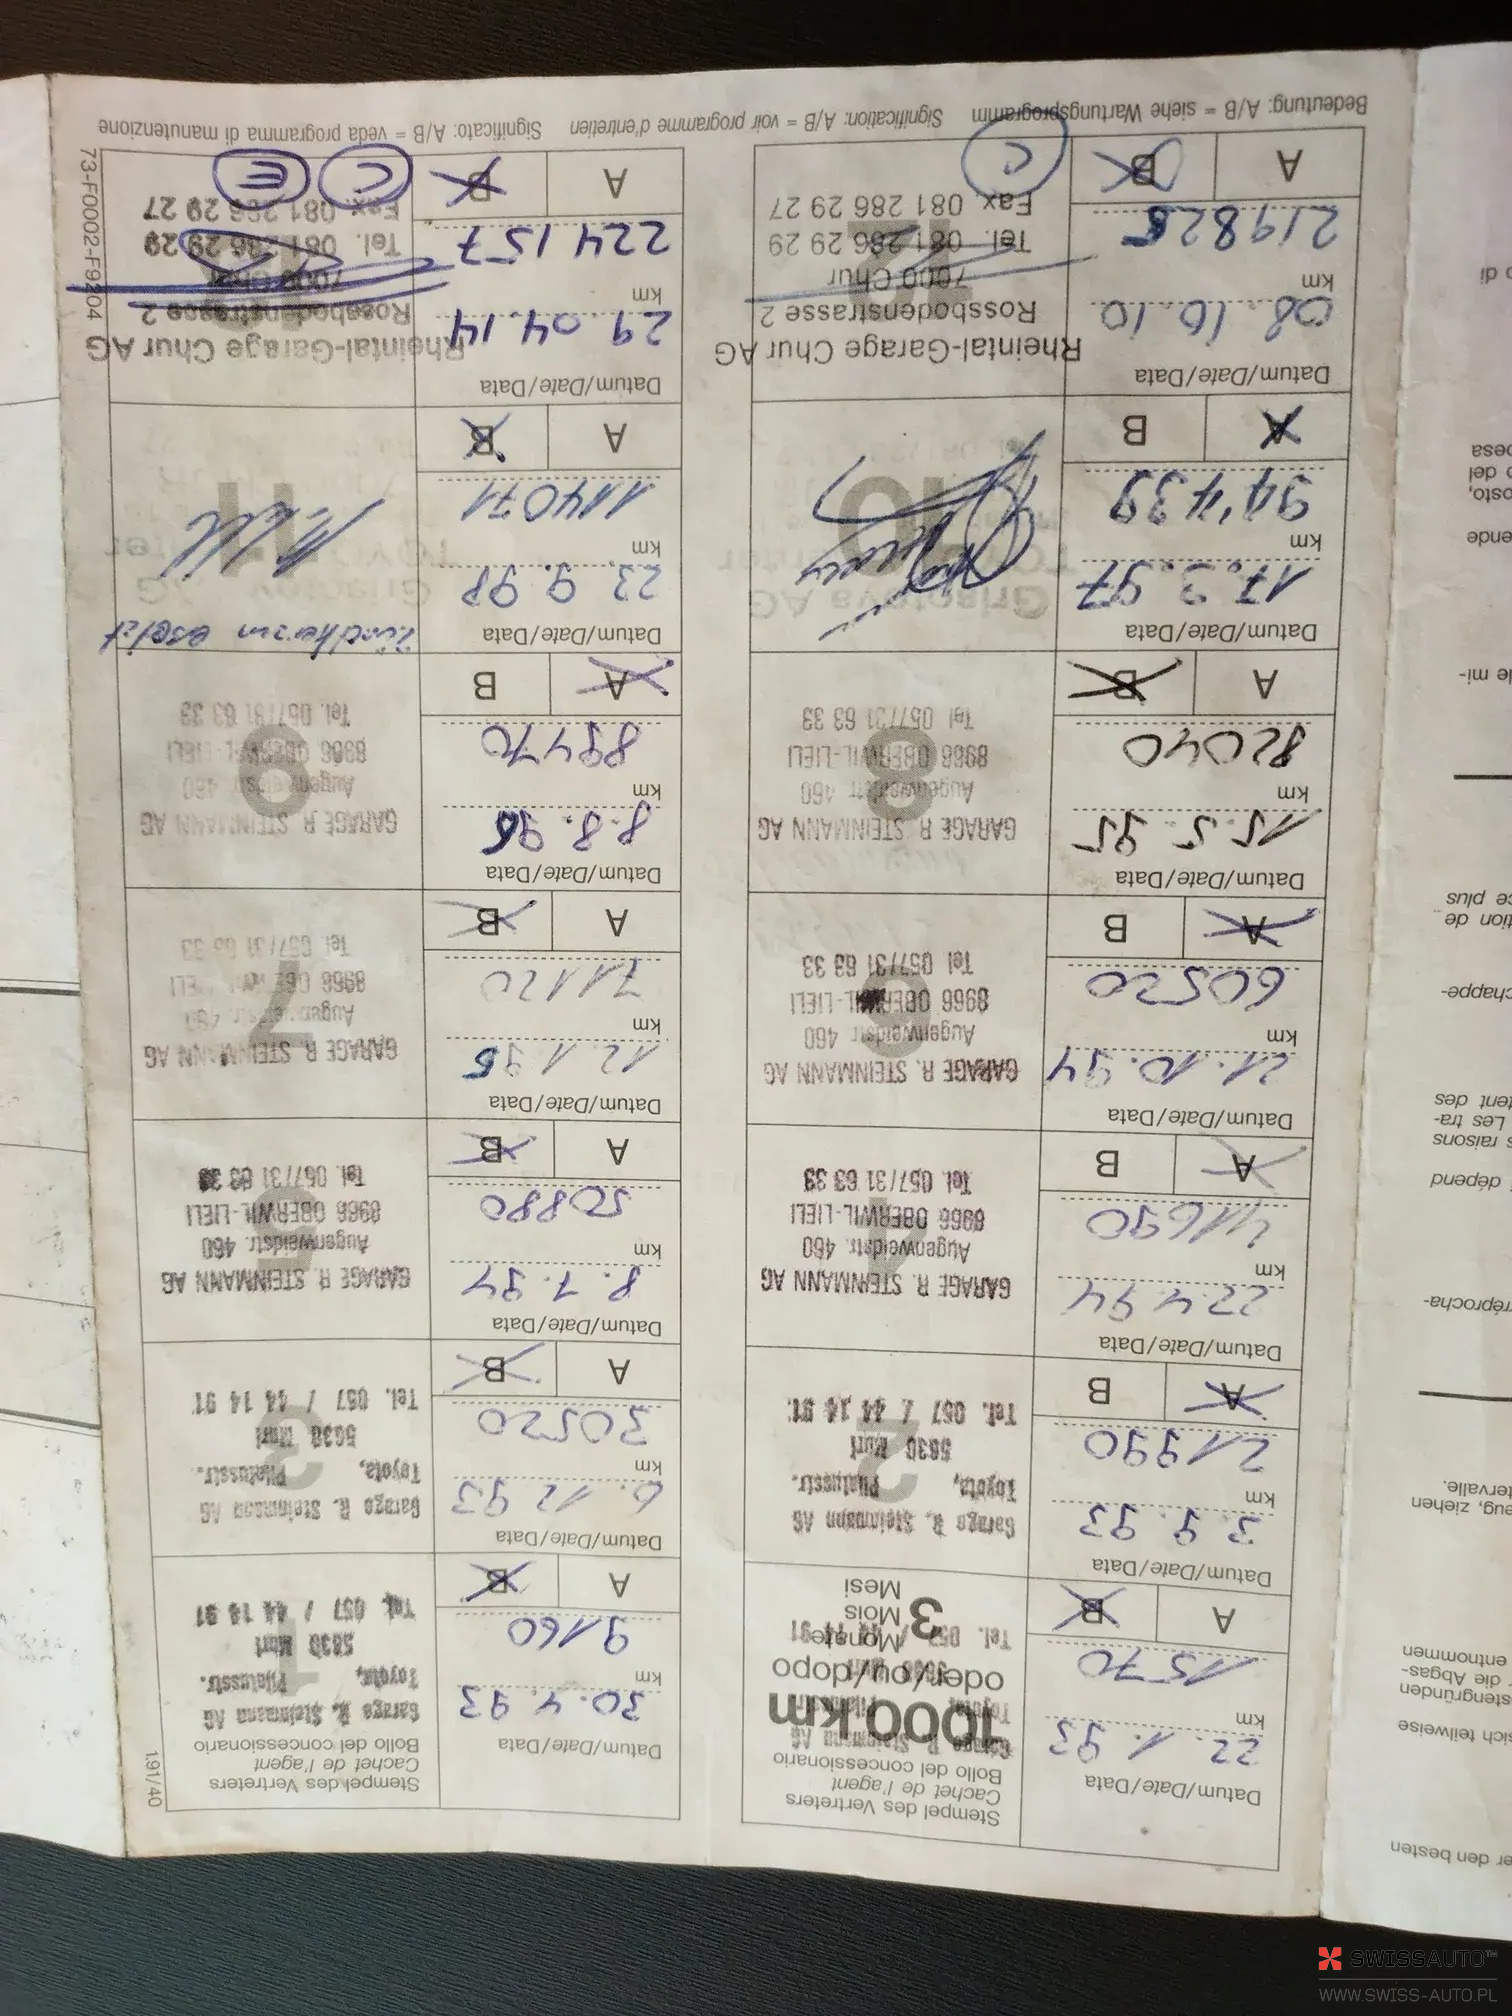 Datum/Date/Data
22.1.93
km
1570
A B
Stempel des Vertreters
Cachet de l'agent
Bollo del concessionario
1000 km
oder/ou/dopo
3
Monate
Mois
Mesi
Datum/Date/Data
3.9.93
km
21990
A B
2
Garage R. Steinmann AG
Toyota, Pilatusstr.
5630 Muri
Tel. 057 / 44 14 91
Datum/Date/Data
22.4.94
km
41690
A B
4
GARAGE R. STEINMANN AG
Augenweidstr. 460
8966 OBERWIL-LIELI
Tel. 057/31 63 33
Datum/Date/Data
21.10.94
km
60520
A B
GARAGE R. STEINMANN AG
Augenweidstr. 460
8966 OBERWIL-LIELI
Tel 057/31 63 33
Datum/Date/Data
15.5.95
km
82040
A B
8
GARAGE R. STEINMANN AG
Augenweidstr. 460
8966 OBERWIL-LIELI
Tel 057/31 63 33
Datum/Date/Data
17.3.97
km
94'439
A B
10
Grisotova AG
Datum/Date/Data
08.10.10
km
219825
A B
12
Rheintal-Garage Chur AG
Rossbodenstrasse 2
7000 Chur
Tel. 081 286 29 29
Fax 081 286 29 27
C
Bedeutung: A/B = siehe Wartungsprogramm Signification: A/B = voir programme d'entretien Significato: A/B = veda programma di manutenzione
Datum/Date/Data
30.4.93
km
9160
A B
Stempel des Vertreters
Cachet de l'agent
Bollo del concessionario
1
Garage R. Steinmann AG
Toyota, Pilatusstr.
5630 Muri
Tel. 057 / 44 14 91
191/40
Datum/Date/Data
6.12.93
km
30520
A B
3
Garage R. Steinmann AG
Toyota, Pilatusstr.
5630 Muri
Tel. 057 / 44 14 91
Datum/Date/Data
8.7.94
km
50880
A B
5
GARAGE R. STEINMANN AG
Augenweidstr. 460
8966 OBERWIL-LIELI
Tel. 057/31 63 33
Datum/Date/Data
12.1.95
km
71120
A B
7
GARAGE R. STEINMANN AG
Augenweidstr. 460
8966 OBERWIL-LIELI
Tel 057/31 63 33
Datum/Date/Data
8.8.96
km
89470
A B
9
GARAGE R. STEINMANN AG
Augenweidstr. 460
8966 OBERWIL-LIELI
Tel. 057/31 63 33
Datum/Date/Data
23.9.98
km
114071
A B
11
Datum/Date/Data
29.04.14
km
224157
A B
Rheintal-Garage Chur AG
Rossbodenstrasse 2
7000 Chur
Tel. 081 286 29 29
Fax 081 286 29 27
C
E
73-F0002-F9204
er den besten
sich teilweise
stengründen
r die Abgas-
entnommen
eug, ziehen
tervalle.
réprocha-
dépend
s raisons
Les tra-
tent des
chappe-
tion de
ce plus
le mi-
ende
osto,
o del
pesa
o di
SWISSAUTO™
WWW.SWISS-AUTO.PL